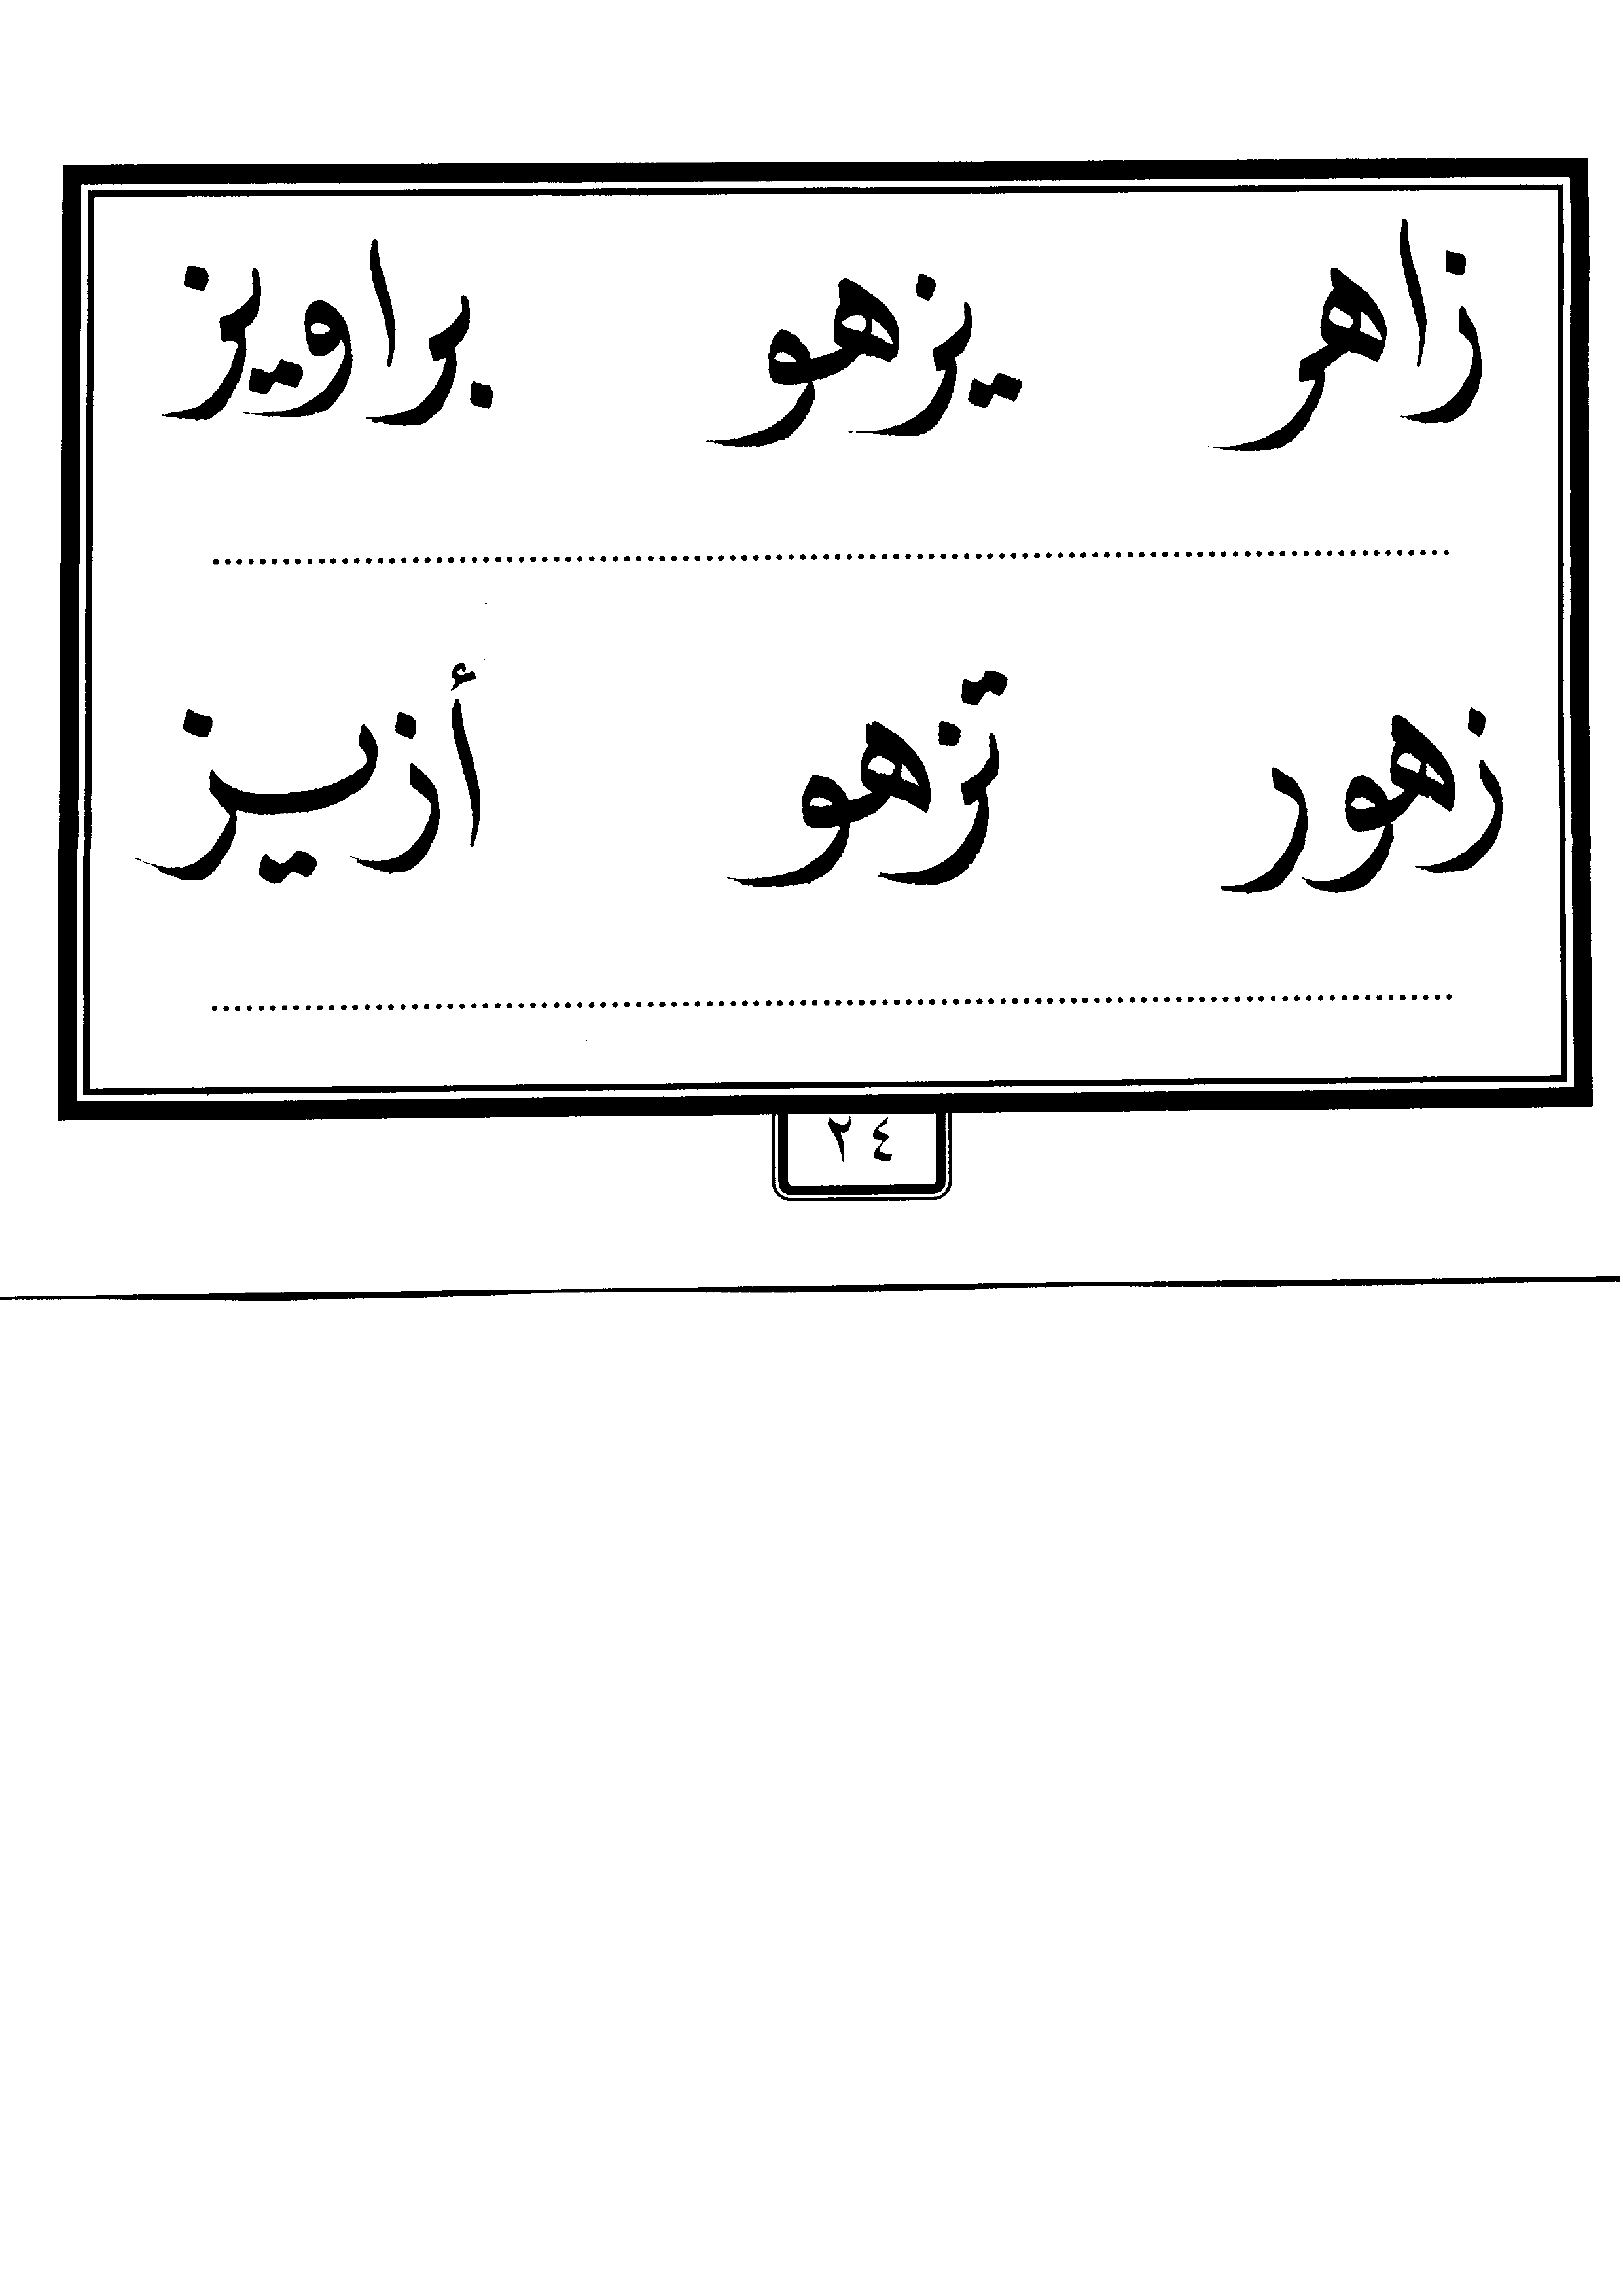 زاهر يزهو براويز
زهور تزهو أزيز
٢٤